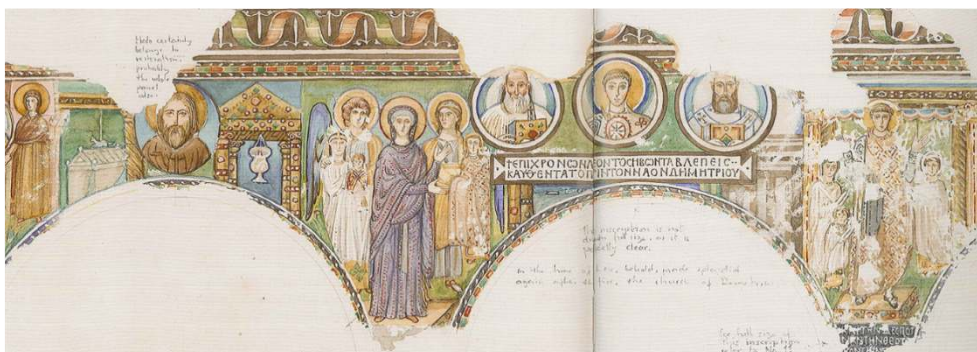 Head certainly
belongs to
restoration,
probably
the whole
panel
also.
+ΕΠΙΧΡΟΝΩΝΛΕΟΝΤΟCΗΒΩΝΤΑΒΛΕΠΕΙC
ΚΑΥΘΕΝΤΑΤΟΠΡΙΝΤΟΝΝΑΟΝΔΗΜΗΤΡΙΟΥ
The inscription is not
drawn full size, as it is
perfectly clear.
In the time of Leo, behold, made splendid
again after the fire, the church of Demetrius.
For full size of
this inscription
refer to No